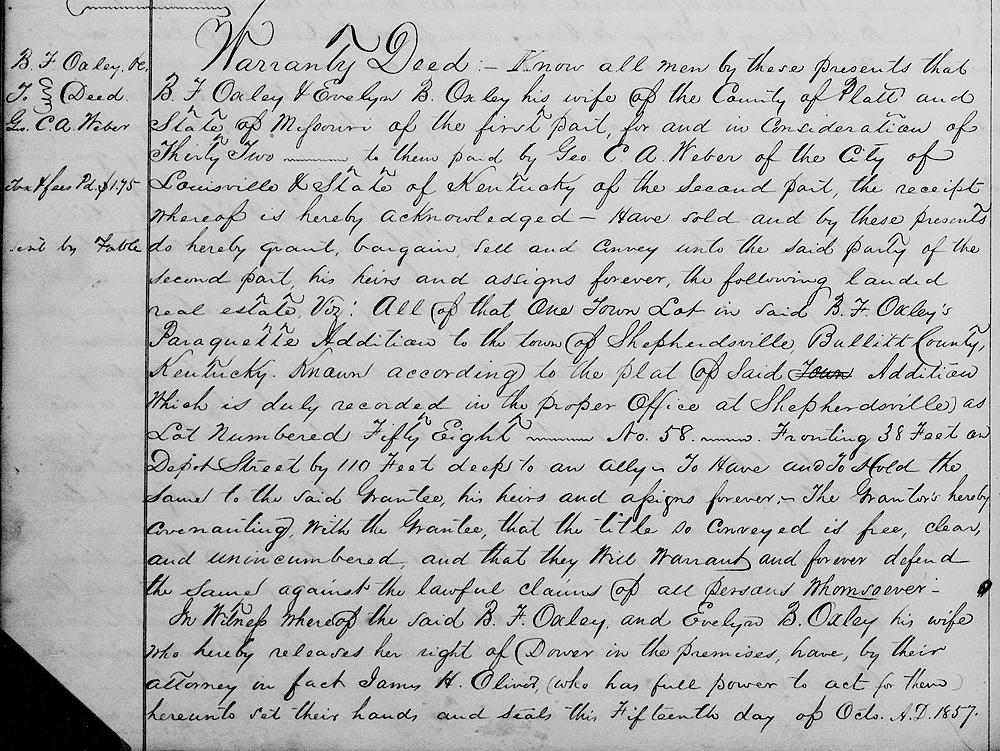 B. F Oxley, &c.
To (Deed.
Geo. C. A. Weber
Tax & fees Pd. $1.75
sent by Table
Warranty Deed :- Know all men by these presents that
B. F Oxley & Evelyn B. Oxley his wife of the County of Platt and
State of Missouri of the first part, for and in Consideration of
Thirty Two ——— to them paid by Geo. C A. Weber of the City of
Louisville & State of Kentucky of the second part, the receipt
whereof is hereby acknowledged - Have sold and by these presents
do hereby grant, bargain, sell and convey unto the said party of the
second part, his heirs and assigns forever, the following landed
real estate, Viz: All of that One Town Lot in said B. F. Oxley's
Paraquette Addition to the town of Shepherdsville, Bullitt County,
Kentucky. Known according to the plat of said Town Addition
Which is duly recorded in the proper Office at Shepherdsville, as
Lot Numbered Fifty Eight ——— No. 58. ———. Fronting 38 Feet on
Depot Street by 110 Feet deep to an ally - To Have and To Hold the
same to the said Grantee, his heirs and assigns forever; - The Grantor's hereby
covenanting, with the Grantee, that the title so conveyed is free, clear,
and unincumbered, and that they Will Warrant and forever defend
the same against the lawful claims of all persons Whomsoever -
In Witness Whereof the said B. F. Oxley, and Evelyn B. Oxley his wife
who hereby releases her right of Dower in the premises, have, by their
attorney in fact James H. Oliver, (who has full power to act for them)
hereunto set their hands and seals this Fifteenth day of Octo. A.D. 1857.